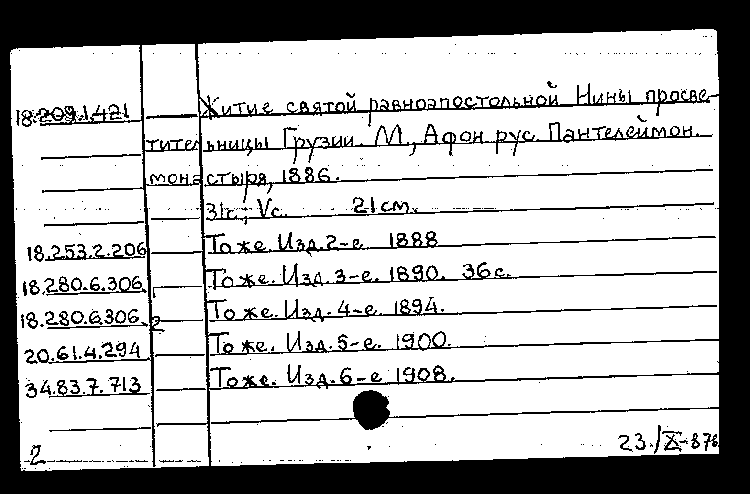 18.209.1.421 Житие святой равноапостольной Нины просве-
тительницы Грузии. М., Афон. рус. Пантелеймон.
монастыря, 1886.
31с.; Vс. 21 см.
18.253.2.206 То же. Изд. 2-е 1888
18.280.6.306 1 То же. Изд. 3-е. 1890. 36 с.
18.280.6.306. 2 То же. Изд. 4-е. 1894.
20.61.4.294 То же. Изд. 5-е. 1900.
34.83.7.713 То же. Изд. 6-е 1908.
2 23./X-